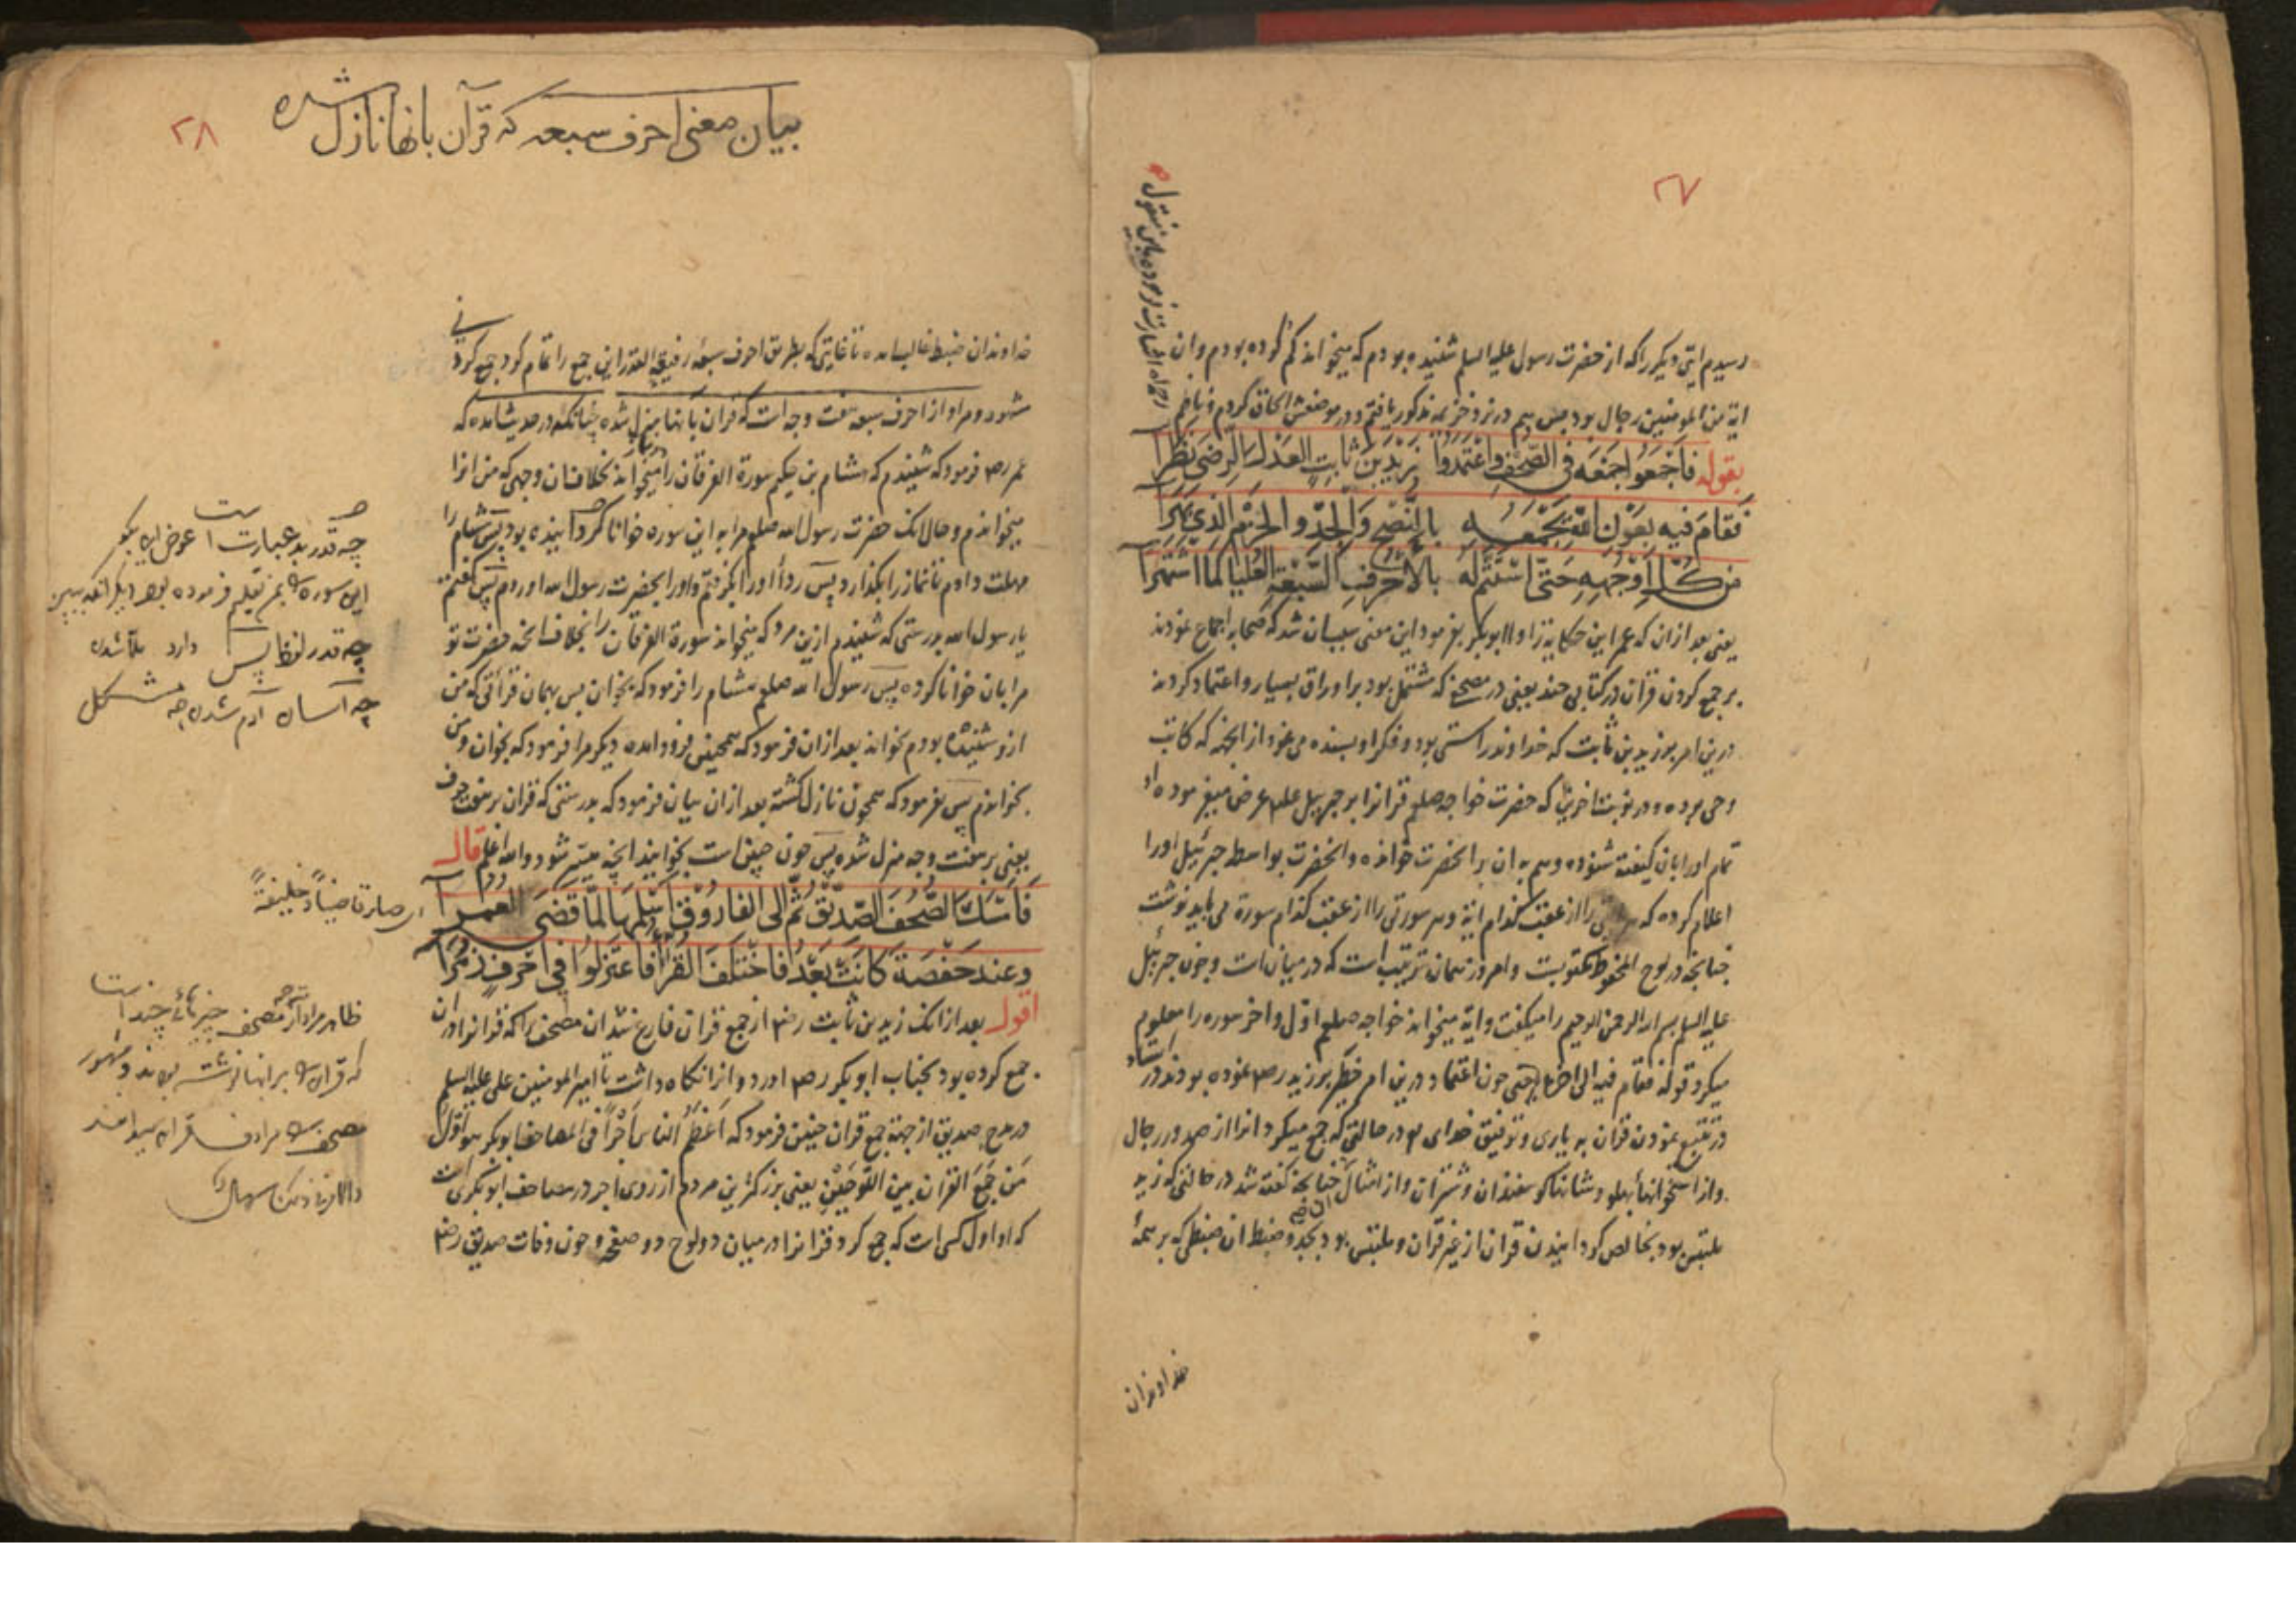 ٢٧
رسیدم ایتی دیکر را که از حضرت رسول علیه السلم شنیده بودم که میخواند کم کرده بودم وان
ایة من المومنین رجال بود پس هم در نزد خزیمه مذکور یافتم و در موضعش الحاق کردم
بقوله فَاجْمَعُوا جَمْعَه فی الصُّحُفِ وَاعْتَمَدُوا زَیْدَ بْنَ ثابِتِ العَدْلَ الرِّضی نَظَرا
فَقامَ فیه بِعَوْنِ اللهِ یَجْمَعُهُ بِالنُّصْحِ وَالْجِدِّ وَالْحَزْمِ الَّذِی بَهَرا
مِن کُلِّ اَوْجُهِهِ حَتّی اسْتَتَمَّ لَهُ بِالْاَحْرُفِ السَّبْعَةِ الْعُلْیا کَمَا اشْتَهَرا
یعنی بعد ازان که عمر این حکایة را با ابوبکر بفرمود این معنی سبب ان شد که صحابه اجماع نمودند
بر جمع کردن قرآن در کتابی چند یعنی در مصحفی که مشتمل بود بر اوراق بسیار و اعتماد کردند
درین امر بر زید بن ثابت که خداوند راستی بود و فکر او بسنده می نمود از انجهة که کاتب
وحی بوده و در نوبت اخرین که حضرت خواجه صلعم قرانرا بر جبرییل علم عرض میفرموده او
تمام اورا بان کیفیة شنوده و هم به ان بر انحضرت خوانده و انحضرت بواسطه جبرئیل اورا
اعلام کرده که هر را از عقب کدام ایة و هر سورتی را از عقب کدام سورة می باید نوشت
چنانچه در لوح المحفوظ مکتوبست و امروز همان ترتیب است که در میان است و چون جبرییل
علیه السلم بسم الله الرحمن الرحیم را میکفت و ایة میخواند خواجه صلعم اول و اخر سوره را معلوم
میکرد قوله فقام فیه الی اخره یعنی چون اعتماد درین امر خطیر بر زید رض نموده بودند در
در تتبع نمودن قران به یاری و توفیق خدای در حالتی که جمع میکرد انرا از صدور رجال
و از استخوانها پهلو و شانها کوسفندان و شتران و از امثال ان چنانچه کفته شد در حالتی که زید
ملتبس بود بخالص کردانیدن قران از غیر قران و ملتبس بود بجد و ضبط ان ضبطی که بر همهٔ
خداوندان
٢٨
بیان معنی احرف سبعه که قرآن بانها نازل شده
خداوندان ضبط غالب امده تا غایتی که بطریق احرف سبعه رفیع القدر این جمع را تمام کرد جمع کردنی
مشهور و مراد از احرف سبعه هفت وجه است که قران بانها منزل شده چنانکه در حدیث امده که
عمر رض فرمود که شنیدم که هشام بن حکیم سورة الفرقان را میخواند بخلاف ان وجهی که من انرا
میخواندم و حال انکه حضرت رسول الله صلعم مرا به این سوره خوانا کردانیده بود پس هشام را
مهلت دادم تا نماز را بکذارد پس ردأ اورا بکرفتم و اورا بحضرت رسول الله اوردم پس کفتم
یا رسول الله بدرستی که شنیدم ازین مرد که میخواند سورة الفرقان را بخلاف انچه حضرت تو
مرا بان خوانا کرده پس رسول الله صلعم هشام را فرمود که بخوان پس بهمان قرائتی که من
ازو شنیده بودم بخواند بعد ازان فرمود که همچنین فرود امده دیکر مرا فرمود که بخوان و من
بخواندم پس بفرمود که همچون نازل کشته بعد ازان بیان فرمود که بدرستی که قران بر هفت حرف
یعنی بر هفت وجه منزل شده پس چون چنین است بخوانید انچه میسر شود والله اعلم قال
فَاَمْسَکَ الصُّحُفَ الصِّدِّیقُ ثُمَّ اِلَی الْفارُوقِ اَسْلَمَها لَمّا قَضَی الْعُمُرا
وَعِنْدَ حَفْصَةَ کانَتْ بَعْدُ فَاخْتَلَفَ الْقُرّاءُ فَاعْتَزَلُوا فِی اَحْرُفٍ زُمَرا
اقول بعد ازانکه زید بن ثابت رض از جمع قران فارغ شد ان مصحف را که قرانرا دران
جمع کرده بود بجناب ابوبکر رض اورد و انرا نکاه داشت تا امیر المومنین علی علیه السلم
در مدح صدیق از جهة جمع قران چنین فرمود که اَعْظَمُ الناسِ اَجْراً فی المصاحف ابوبکر هو اَوَّلُ
مَن جَمَعَ القرانَ بین اللَّوحَیْنِ یعنی بزرکترین مردم از روی اجر در مصاحف ابوبکر است
که او اول کسی است که جمع کرد قرانرا در میان دو لوح دو صفحه و چون وفات صدیق رض
چه قدر بد عبارت است
چه قدر لفظ پس دارد
چه آسان
ای صار قاضیاً و خلیفةً
ظاهر مراد از مصحف چیزهائ چند است
که قران را بر انها نوشته بودند